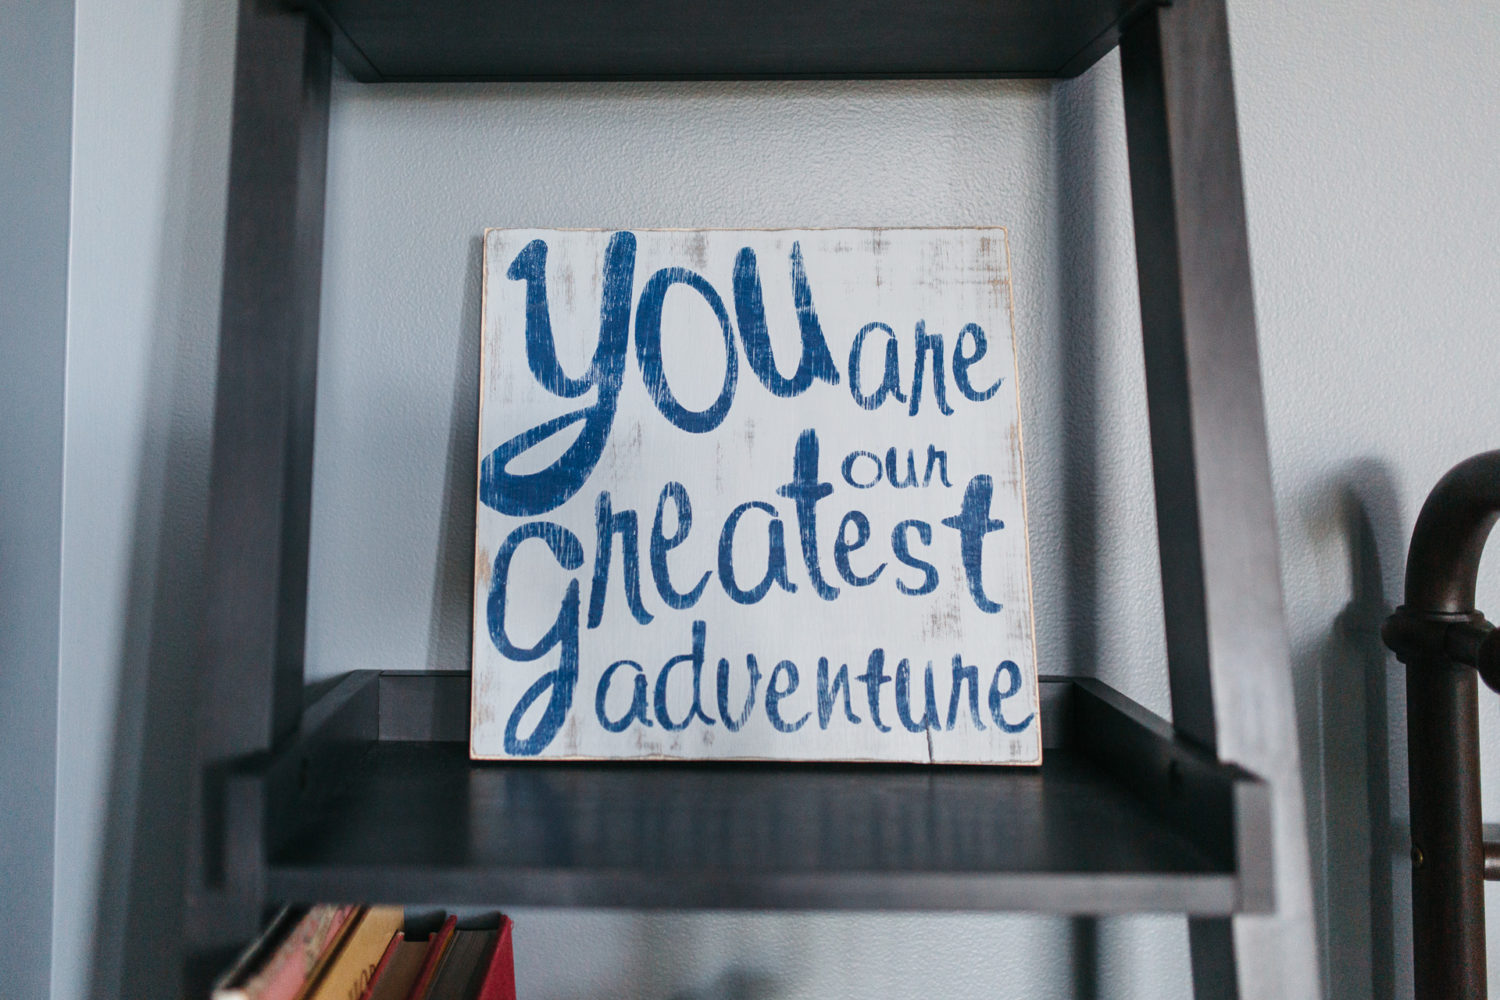 you are
our
greatest
adventure